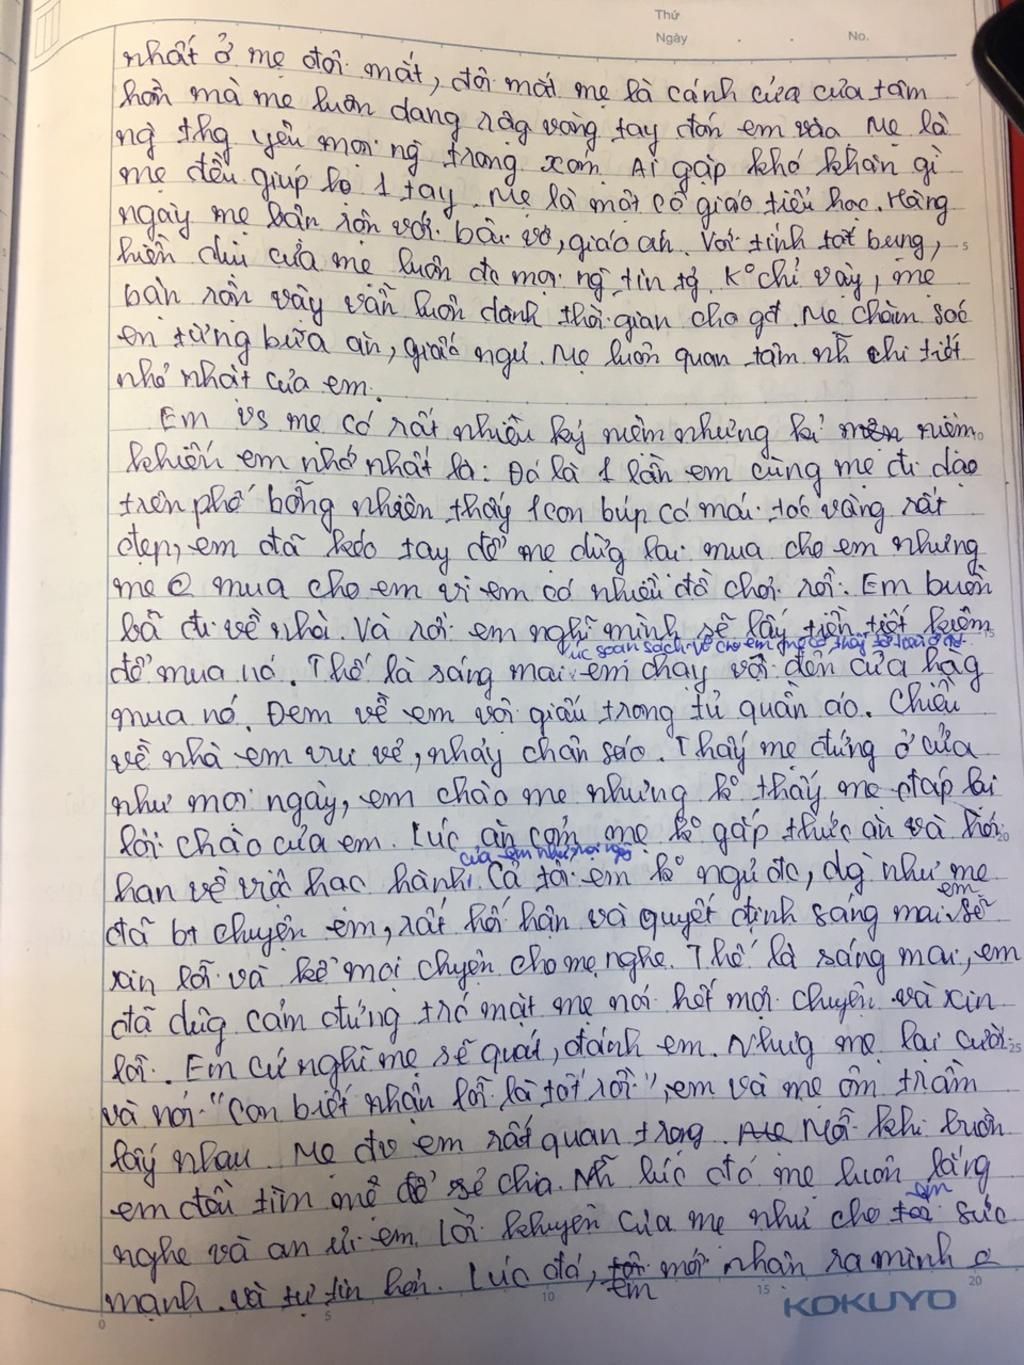 Thứ
Ngày . . No.
nhất ở mẹ đôi mắt, đôi mắt mẹ là cánh cửa của tâm
hồn mà mẹ luôn dang rộg vòng tay đón em vào. Mẹ là
ng thg yêu mọi ng trong xóm. Ai gặp khó khăn gì
mẹ đều giúp họ 1 tay. Mẹ là một cô giáo tiểu học. Hàng
ngày mẹ bận rộn với bài vở, giáo án. Với tính tốt bụng,
hiền dịu của mẹ luôn đc mọi ng tin tg. Kº chỉ vậy, mẹ
bận rộn vậy vẫn luôn dành thời gian cho gđ. Mẹ chăm sóc
em từng bữa ăn, giấc ngủ. Mẹ luôn quan tâm nh chi tiết
nhỏ nhất của em.
Em vs mẹ có rất nhiều kỷ niệm nhưng kỉ niệm
khiến em nhớ nhất là: Đó là 1 lần em cùng mẹ đi dạo
trên phố bỗng nhiên thấy 1 con búp có mái tóc vàng rất
đẹp, em đã kéo tay để mẹ dừg lại mua cho em nhưng
mẹ mua cho em vì em có nhiều đồ chơi rồi. Em buồn
bã đi về nhà. Và rồi em nghĩ mình sẽ lấy tiền tiết kiệm
lúc soạn sách vở cho em
để mua nó. Thế là sáng mai em chạy vội đến cửa hàg
mua nó. Đem về em vội giấu trong tủ quần áo. Chiều
về nhà em vui vẻ, nhảy chân sáo. Thấy mẹ đứng ở cửa
như mọi ngày, em chào mẹ nhưng kº thấy mẹ đáp lại
lời chào của em. Lúc ăn cơm mẹ kº gắp thức ăn và hỏi
của em như mọi ngày
han về việc học hành. Cả tối em kº ngủ đc, dg như mẹ
đã bt chuyện em, rất hối hận và quyết định sáng mai em sẽ
xin lỗi và kể mọi chyện cho mẹ nghe. Thế là sáng mai, em
đã dũg cảm đứng trớ mặt mẹ nói hết mọi chuyện và xin
lỗi. Em cứ nghĩ mẹ sẽ quát, đánh em. Nhưg mẹ lại cười
và nói "Con biết nhận lỗi là tốt rồi", em và mẹ ôm trầm
lấy nhau. Mẹ đv em rất quan trọng. Mỗi khi buồn
em đều tìm mẹ để sẻ chia. Nh lúc đó mẹ luôn lắng
nghe và an ủi em. Lời khuyên của mẹ như cho em sức
mạnh và tự tin hơn. Lúc đó, em mới nhận ra mình
5 10 15 20 25
0 5 10 15 20
KOKUYO